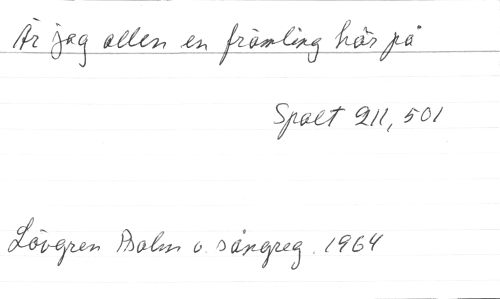 Är jag allen en främling här på
Spalt 211, 501
Lövgren Psalm o. sångreg. 1964